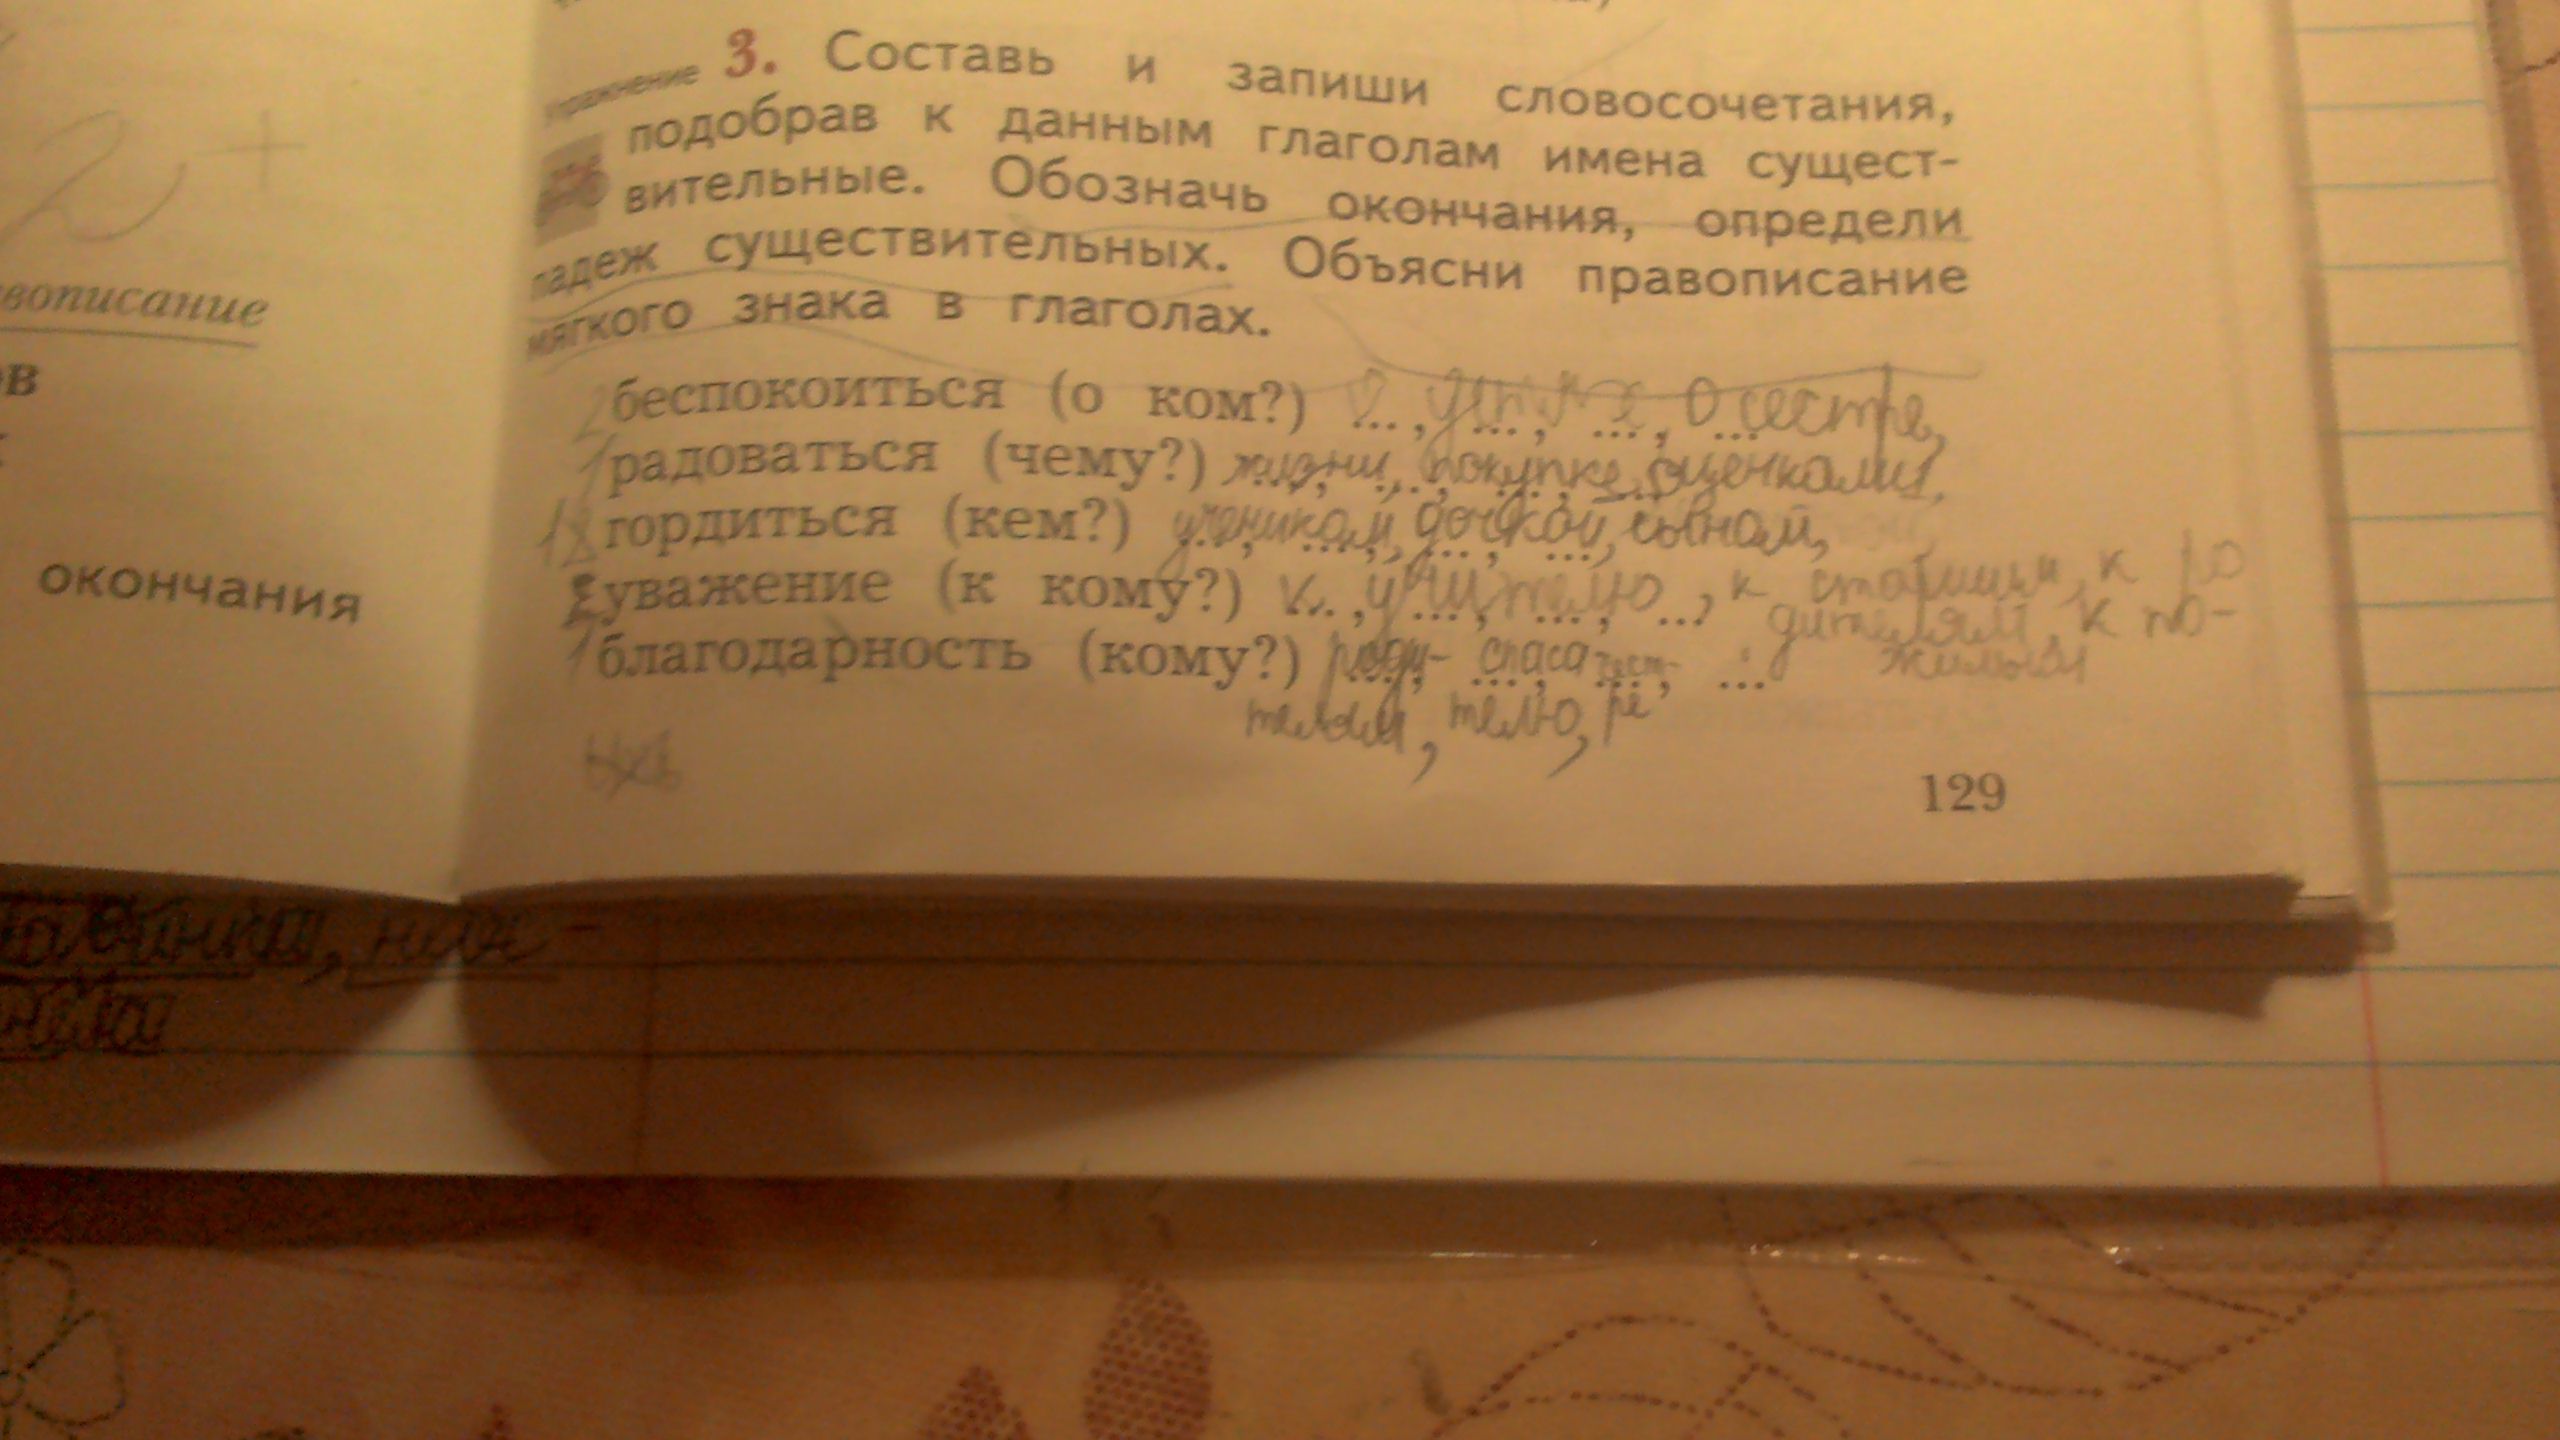 вописание
ов
окончания
Упражнение 3. Составь и запиши словосочетания,
подобрав к данным глаголам имена сущест-
вительные. Обозначь окончания, определи
падеж существительных. Объясни правописание
мягкого знака в глаголах.
2 беспокоиться (о ком?) ... , ... , ... , о сестре,
1 радоваться (чему?) жизни, покупке, оценками,
гордиться (кем?) учеником, дочкой, сыном,
уважение (к кому?) к учителю, к старшим, к ро
дителям, к по-
жилым
1 благодарность (кому?) роди- спаса ...
телям, телю, ре
129
2+